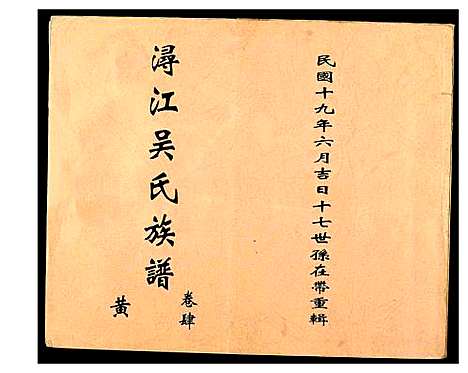 民國十九年六月吉日十七世孫在帶重輯
潯江吳氏族譜
卷肆
黃